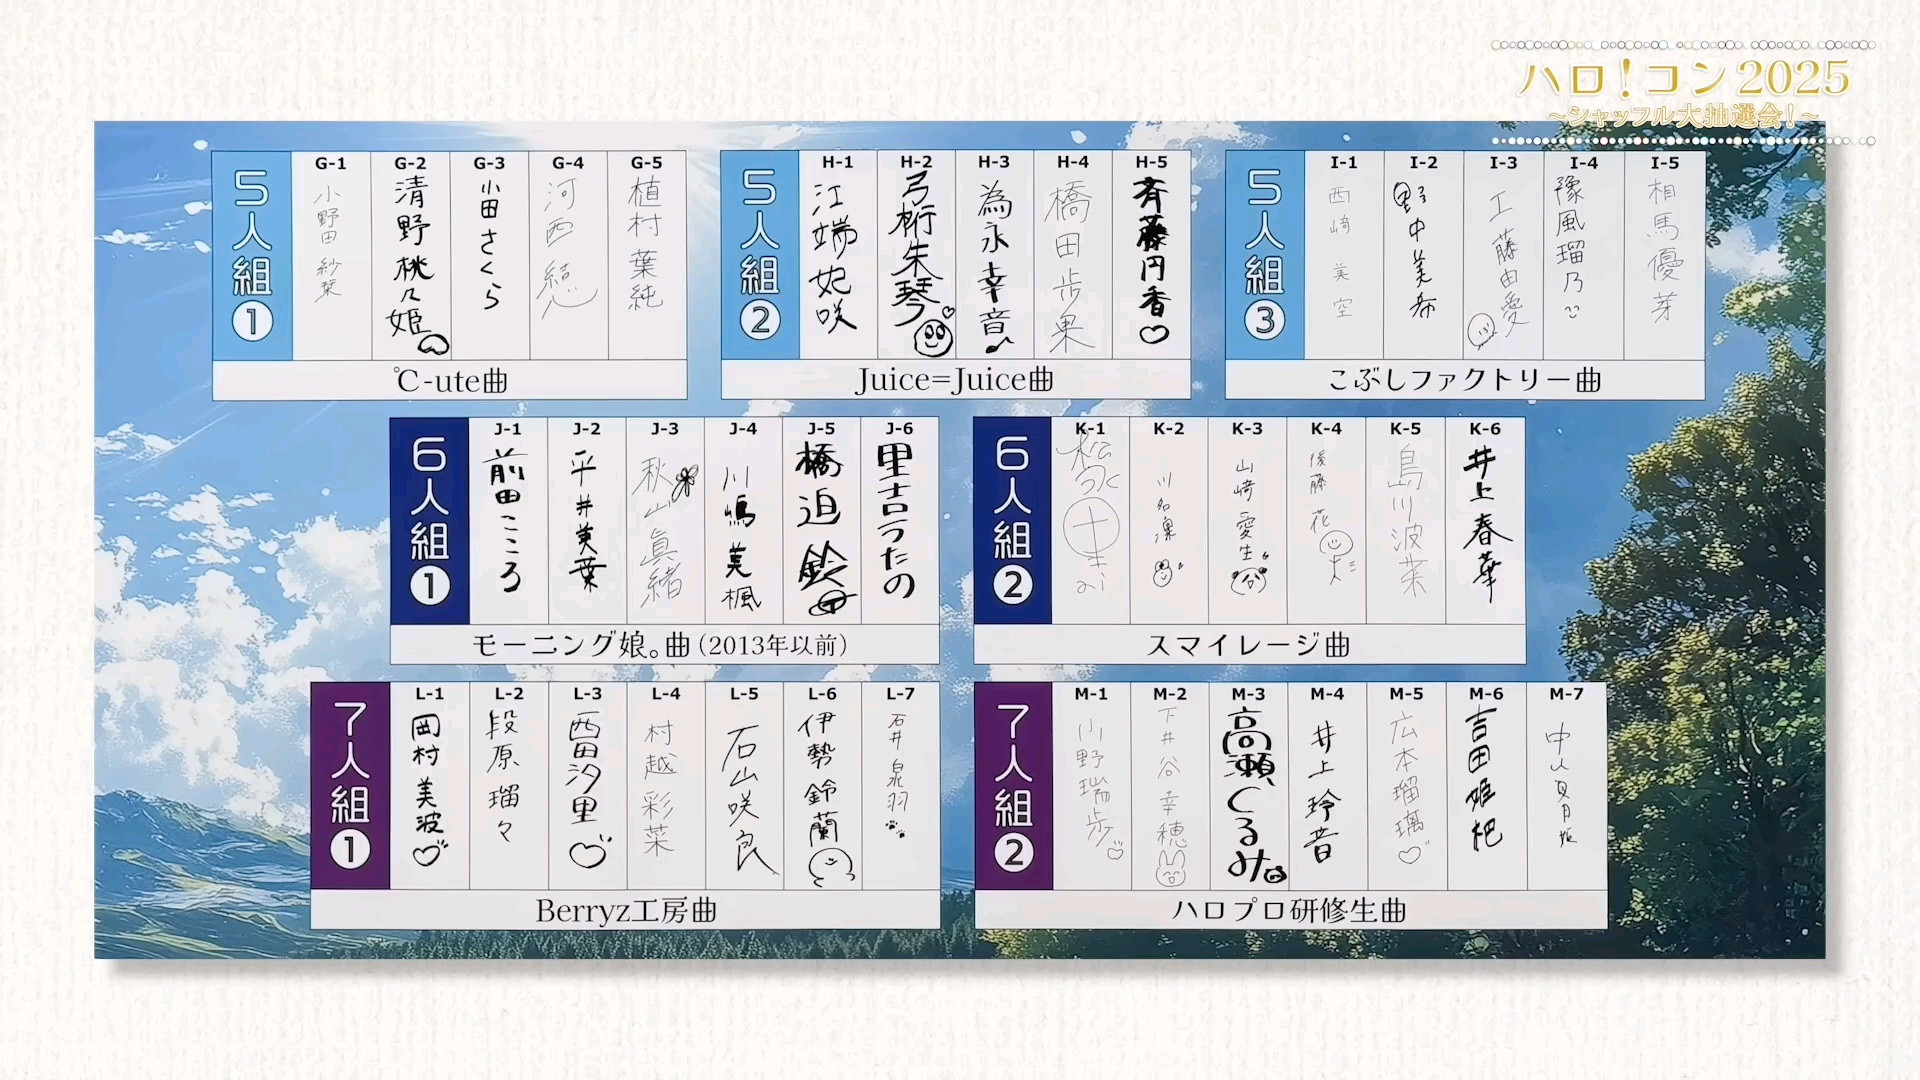 ハロ！コン 2025
～シャッフル大抽選会！～
5人組❶
G-1 小野田 紗栞
G-2 清野桃々姫
G-3 小田さくら
G-4 河西 結心
G-5 植村葉純
℃-ute曲
5人組❷
H-1 江端妃咲
H-2 弓桁朱琴
H-3 為永幸音
H-4 橋田歩果
H-5 斉藤円香
Juice=Juice曲
5人組❸
I-1 西﨑 美空
I-2 野中美希
I-3 工藤由愛
I-4 豫風瑠乃
I-5 相馬優芽
こぶしファクトリー曲
6人組❶
J-1 前田こころ
J-2 平井美葉
J-3 秋山眞緒
J-4 川嶋美楓
J-5 橋迫 鈴
J-6 里吉うたの
モーニング娘。曲（2013年以前）
6人組❷
K-1 松永
K-2 川名凜
K-3 山﨑愛生
K-4 後藤 花
K-5 島川波菜
K-6 井上春華
スマイレージ曲
7人組❶
L-1 岡村美波
L-2 段原瑠々
L-3 西田汐里
L-4 村越彩菜
L-5 石山咲良
L-6 伊勢鈴蘭
L-7 石井泉羽
Berryz工房曲
7人組❷
M-1 小野瑞歩
M-2 下井谷幸穂
M-3 高瀬くるみ
M-4 井上玲音
M-5 広本瑠璃
M-6 吉田姫杷
M-7 中山夏月姫
ハロプロ研修生曲